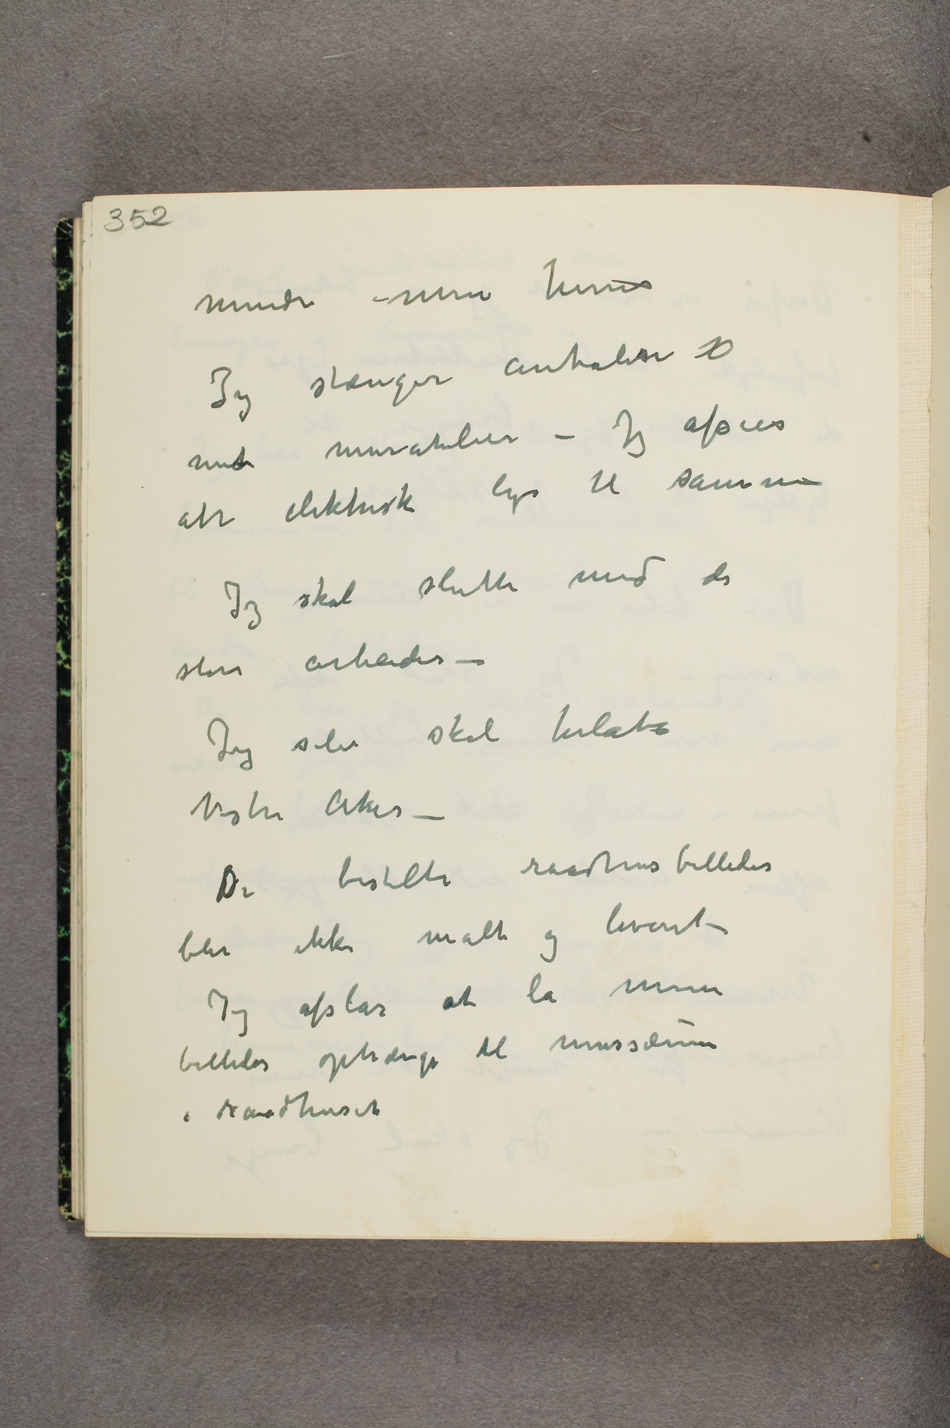 352
mindre mine huus
Jeg stænger
mit muratelier – Jeg afsies
alt elektrisk lys til samme
Jeg skal slutte med de
store arbeider –
Jeg selv skal forlate
Vestre Aker –
De bestilte raadhusbilleder
blir ikke malt og leveret –
Jeg afslår at la mine
billeder ophænge til mussæum
i Raadhuset